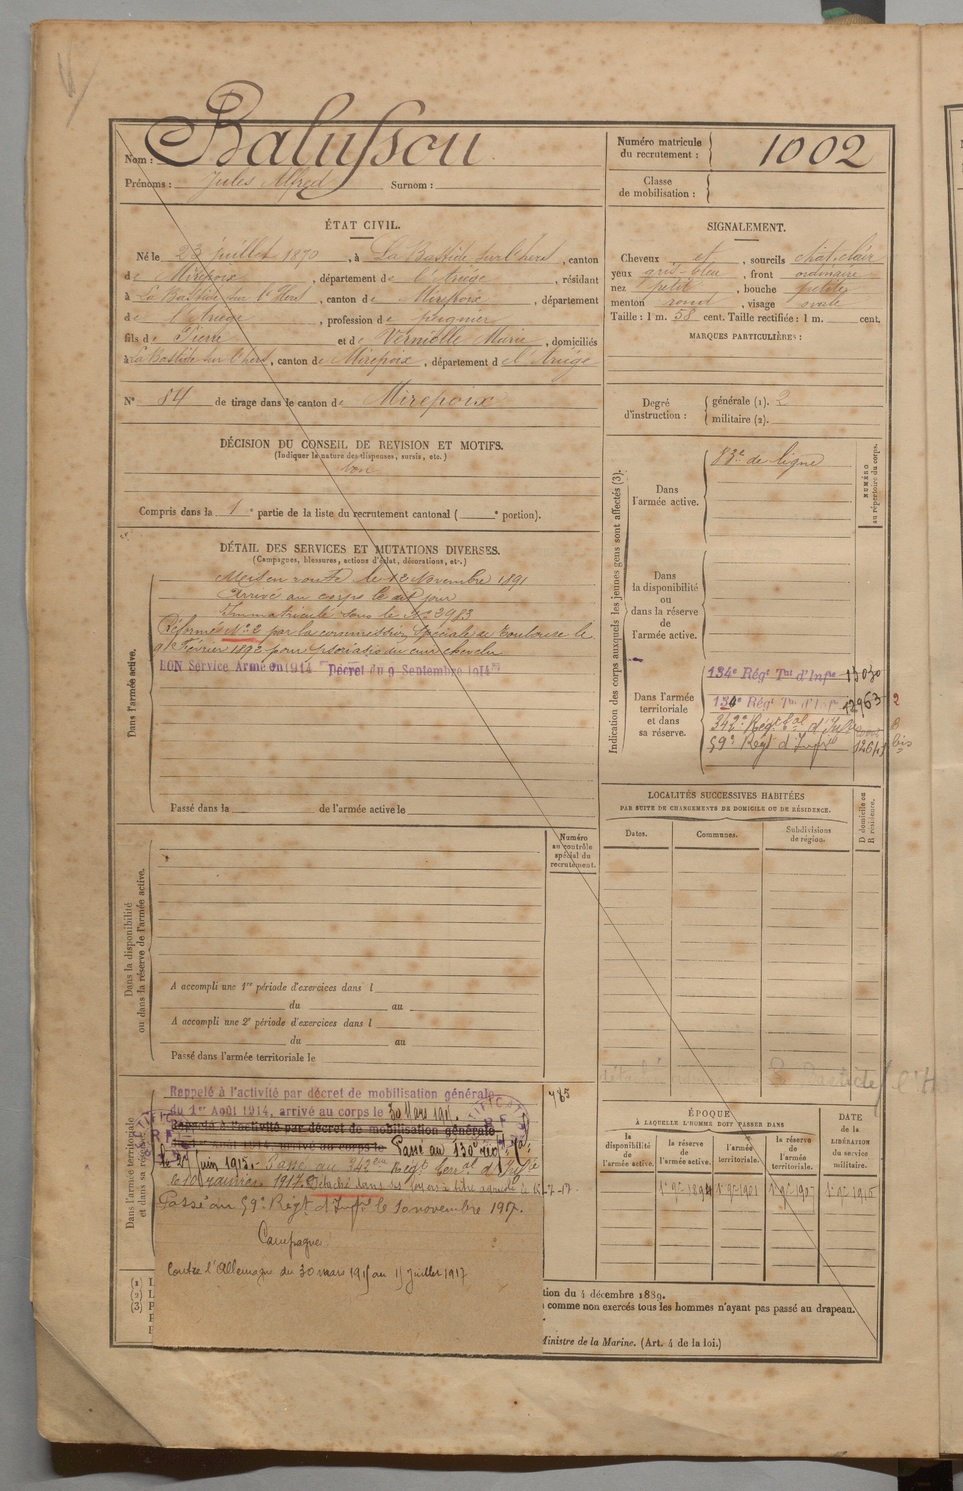 Nom : Balussou
Prénoms : Jules Alfred Surnom :
Numéro matricule du recrutement : 1002
Classe de mobilisation :
ÉTAT CIVIL.
Né le 23 juillet 1870, à La Bastide sur l'Hers, canton
de Mirepoix, département de l'Ariège, résidant
à La Bastide sur l'Hers, canton de Mirepoix, département
de l'Ariège, profession de peignier
fils de Pierre et de Vermolle Marie, domiciliés
à La Bastide sur l'Hers, canton de Mirepoix, département d l'Ariège
N° 84 de tirage dans le canton de Mirepoix
SIGNALEMENT.
Cheveux et, sourcils chat. clair
yeux gris-bleu, front ordinaire
nez petit, bouche petite
menton rond, visage ovale
Taille : 1 m. 58 cent. Taille rectifiée : 1 m. cent.
MARQUES PARTICULIÈRES :
Degré d'instruction : générale (1). 2
militaire (2).
DÉCISION DU CONSEIL DE REVISION ET MOTIFS.
(Indiquer la nature des dispenses, sursis, etc.)
bon
Compris dans la 1e partie de la liste du recrutement cantonal ( e portion).
DÉTAIL DES SERVICES ET MUTATIONS DIVERSES.
(Campagnes, blessures, actions d'éclat, décorations, etc.)
Dans l'armée active.
Mis en route le 12 Novembre 1891
Arrivé au corps le dit jour
Immatriculé sous le N° 2983
Réformé N° 2 par la commission spéciale de Toulouse le
Février 1892 pour psoriasis du cuir chevelu
BON Service Armé en 1914 Décret du 9 Septembre 1914
Passé dans la de l'armée active le
Indication des corps auxquels les jeunes gens sont affectés (3).
NUMÉRO au répertoire du corps.
Dans l'armée active.
83e de ligne
Dans la disponibilité ou dans la réserve de l'armée active.
Dans l'armée territoriale et dans sa réserve.
134e Régt Tal d'Infie 13030
130e Régt Tal d'Infie 12963 2
342e Régt tal d'Infie
59e Régt d'Infie bis
LOCALITÉS SUCCESSIVES HABITÉES
PAR SUITE DE CHANGEMENTS DE DOMICILE OU DE RÉSIDENCE.
Dates. Communes. Subdivisions de région. D domicile ou R résidence.
Dans la disponibilité ou dans la réserve de l'armée active.
Numéro au contrôle spécial du recrutement.
A accompli une 1re période d'exercices dans l
du au
A accompli une 2e période d'exercices dans l
du au
Passé dans l'armée territoriale le
Dans l'armée territoriale et dans sa réserve
Rappelé à l'activité par décret de mobilisation générale
du 1er Août 1914, arrivé au corps le 30 Mars 1915.
Rappelé à l'activité par décret de mobilisation générale
arrivé au corps le Passé au 130e
le 27 juin 1915. - Passé au 342e Régt terral d'Infie
le 10 janvier 1917. Détaché dans ses foyers à titre agricole le 15-7-17.
Passé au 59e Régt d'Infie le 10 novembre 1917.
Campagne.
Contre l'Allemagne du 30 mars 1915 au 15 juillet 1917
785
ÉPOQUE
À LAQUELLE L'HOMME DOIT PASSER DANS
la disponibilité de l'armée active. la réserve de l'armée active. l'armée territoriale. la réserve de l'armée territoriale.
DATE de la LIBÉRATION du service militaire.
1er 9bre 1894 1er 9bre 1901 1er 9bre 1907 1er 9bre 1916
(1)
(2)
(3)
tion du 4 décembre 1889.
comme non exercés tous les hommes n'ayant pas passé au drapeau.
Ministre de la Marine. (Art. 4 de la loi.)